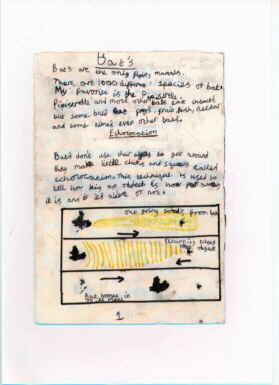 Bat's
Bats are the only flying mamals.
There are 1000 different species of bats
My favorite is the Pipistrelle.
Pipistrelle and most other bats eat insects
but some bats eat frogs, fruit, fish,
and some times even other bats.
Echolocation
Bats don't use their eyes to get around
they make little clicks and squeaks called
echolocation. This technique is used to
tell how big an object is how far away
it is and if its alive or not.
one being made from bat
object
Bat moves in
1